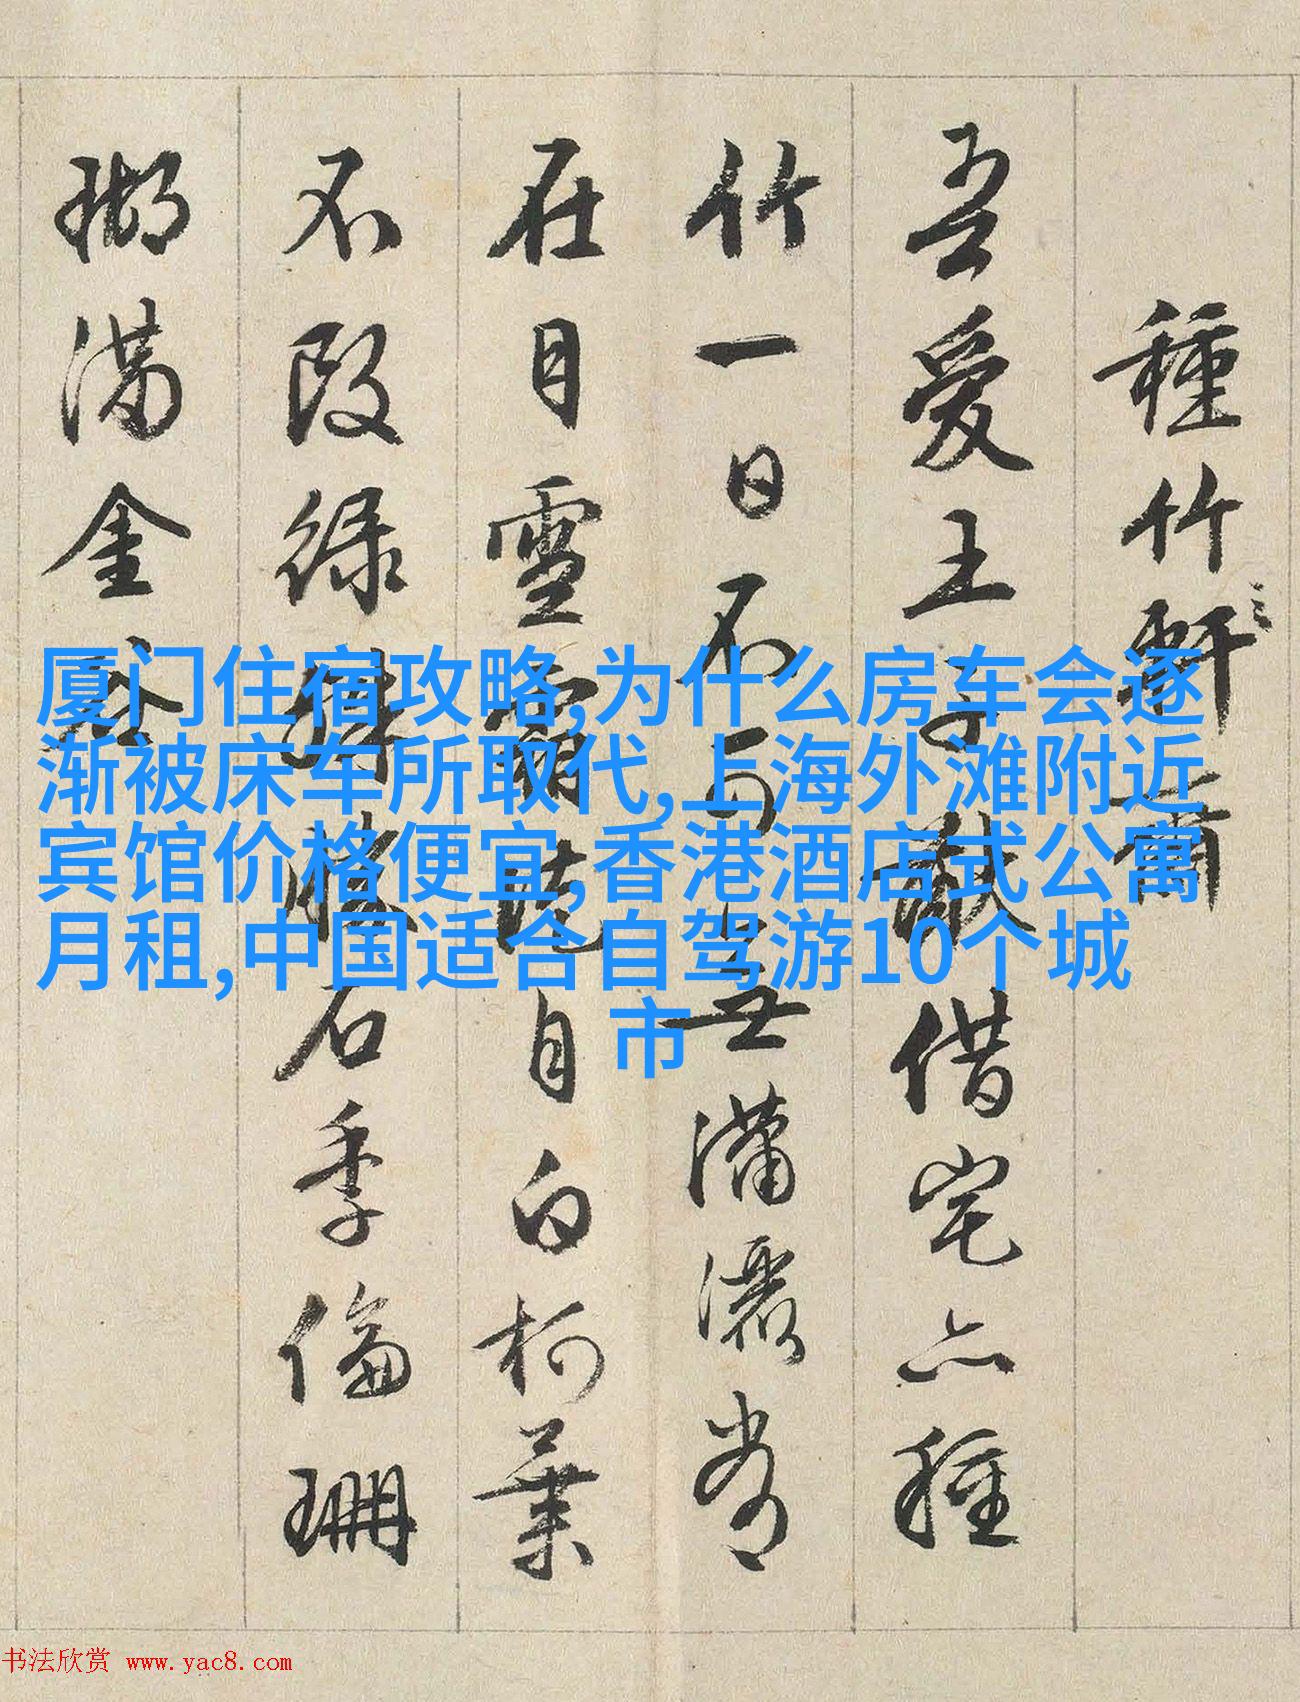 種竹軒
吾愛王子猷借宅亦種
竹一日不可無瀟灑常
在目雪霜徒自白柯葉
不改綠殊勝石季倫珊
瑚滿金谷
厦门住宿攻略,为什么房车会逐
渐被床车所取代,上海外滩附近
宾馆价格便宜,香港酒店式公寓
月租,中国适合自驾游10个城
市
书法欣赏 www.yac8.com